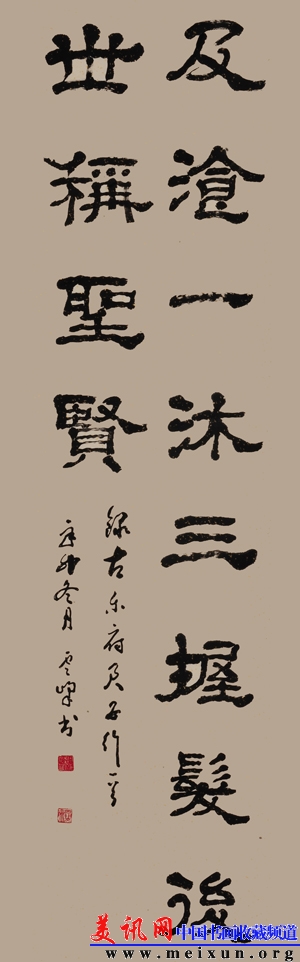 及湌一沐三握髮後
世稱聖賢
録古乐府君子行一首
辛卯冬月雲峰书
美讯网
中国书画收藏频道
www.meixun.org